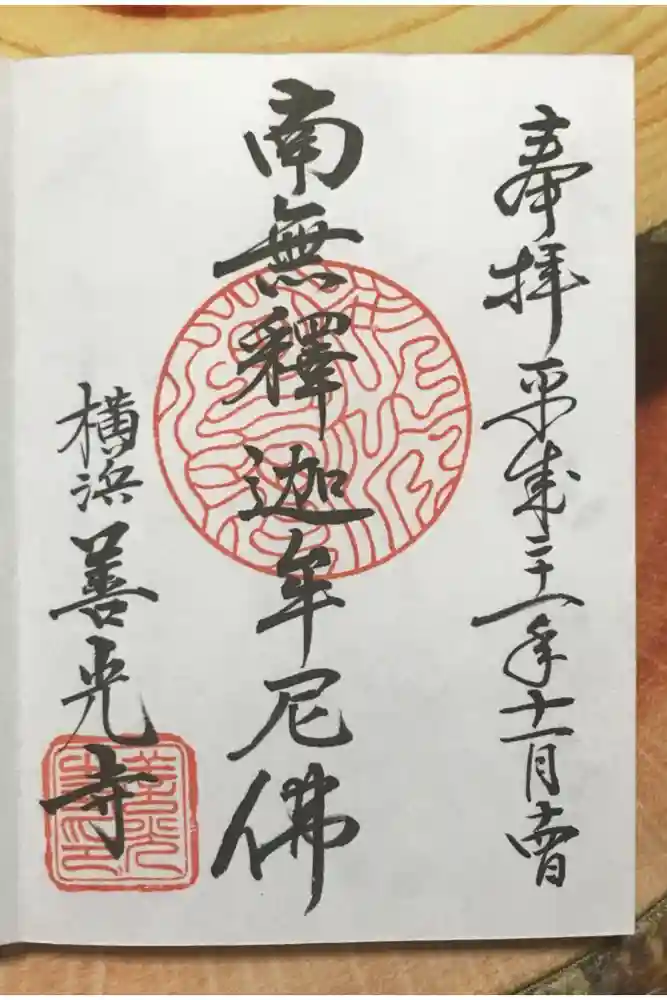 奉拝 平成二十一年十一月
南無釋迦牟尼佛
横浜 善光寺
善光寺印